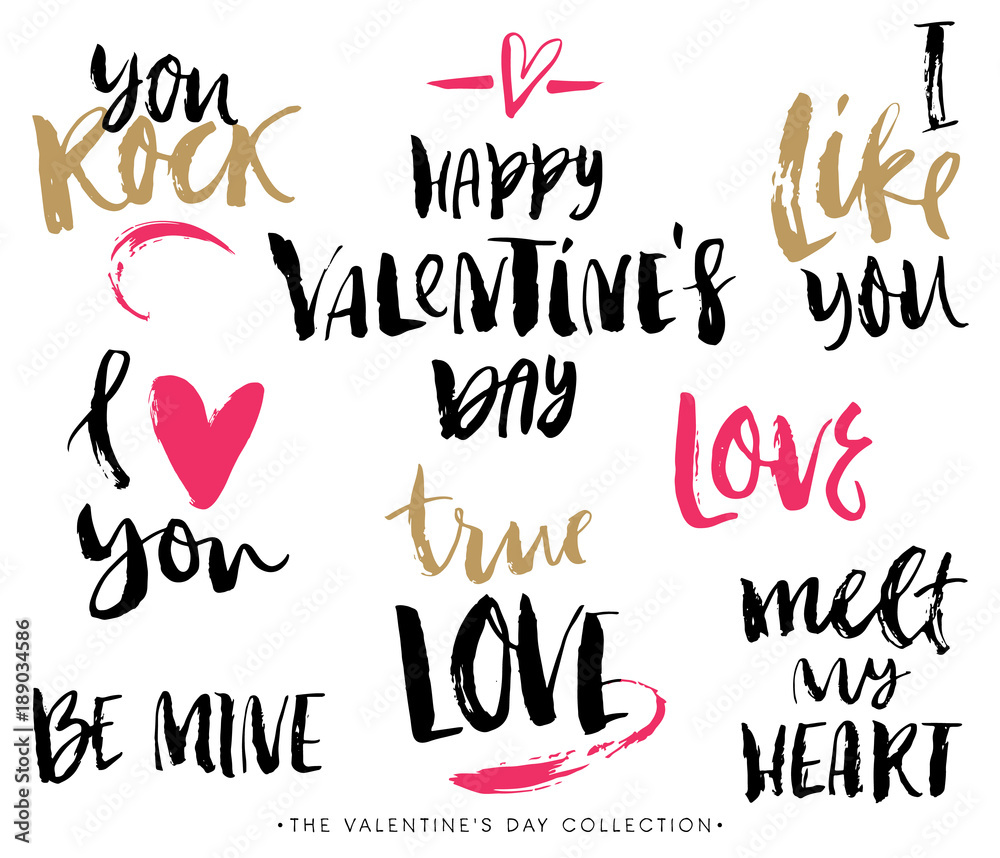 you
Rock
Happy
Valentine's
Day
I
Like
you
I
you
Love
true
Love
melt
my
Heart
Be Mine
•THE VALENTINE'S DAY COLLECTION•
Adobe Stock | #189034586